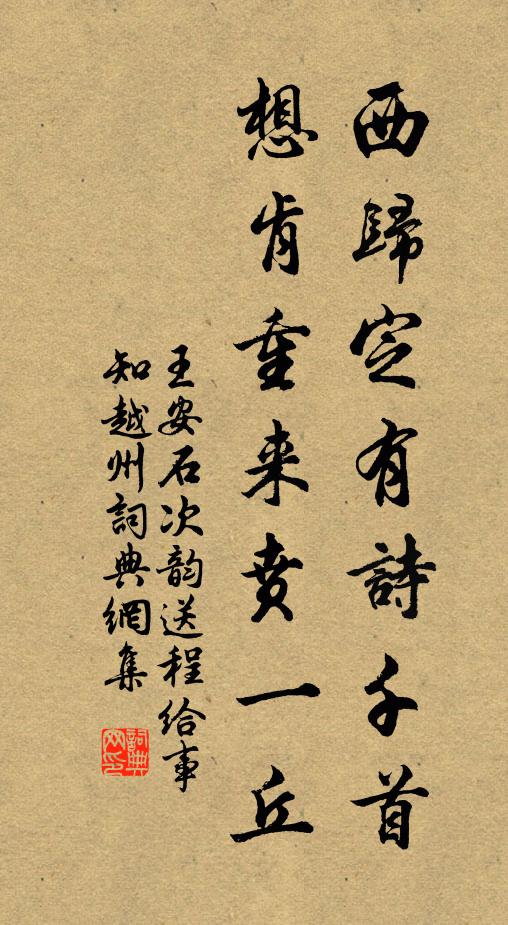 西歸定有詩千首
想肯重来賁一丘
王安石次韵送程给事
知越州詞典網集
詞典網印